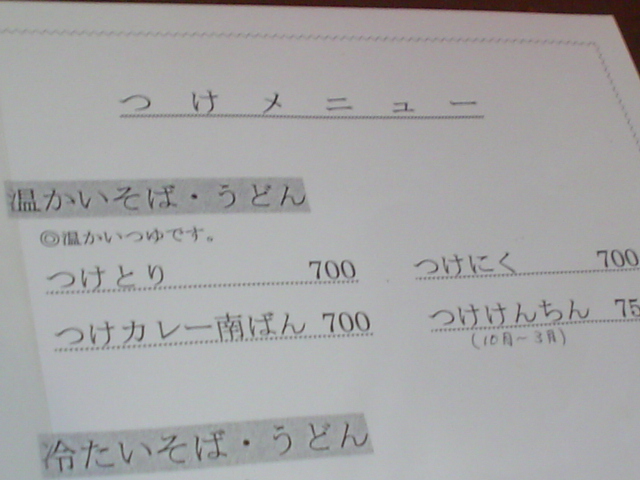 つけメニュー
温かいそば・うどん
◎温かいつゆです。
つけとり 700 つけにく 700
つけカレー南ばん 700 つけけんちん 75
(10月~3月)
冷たいそば・うどん